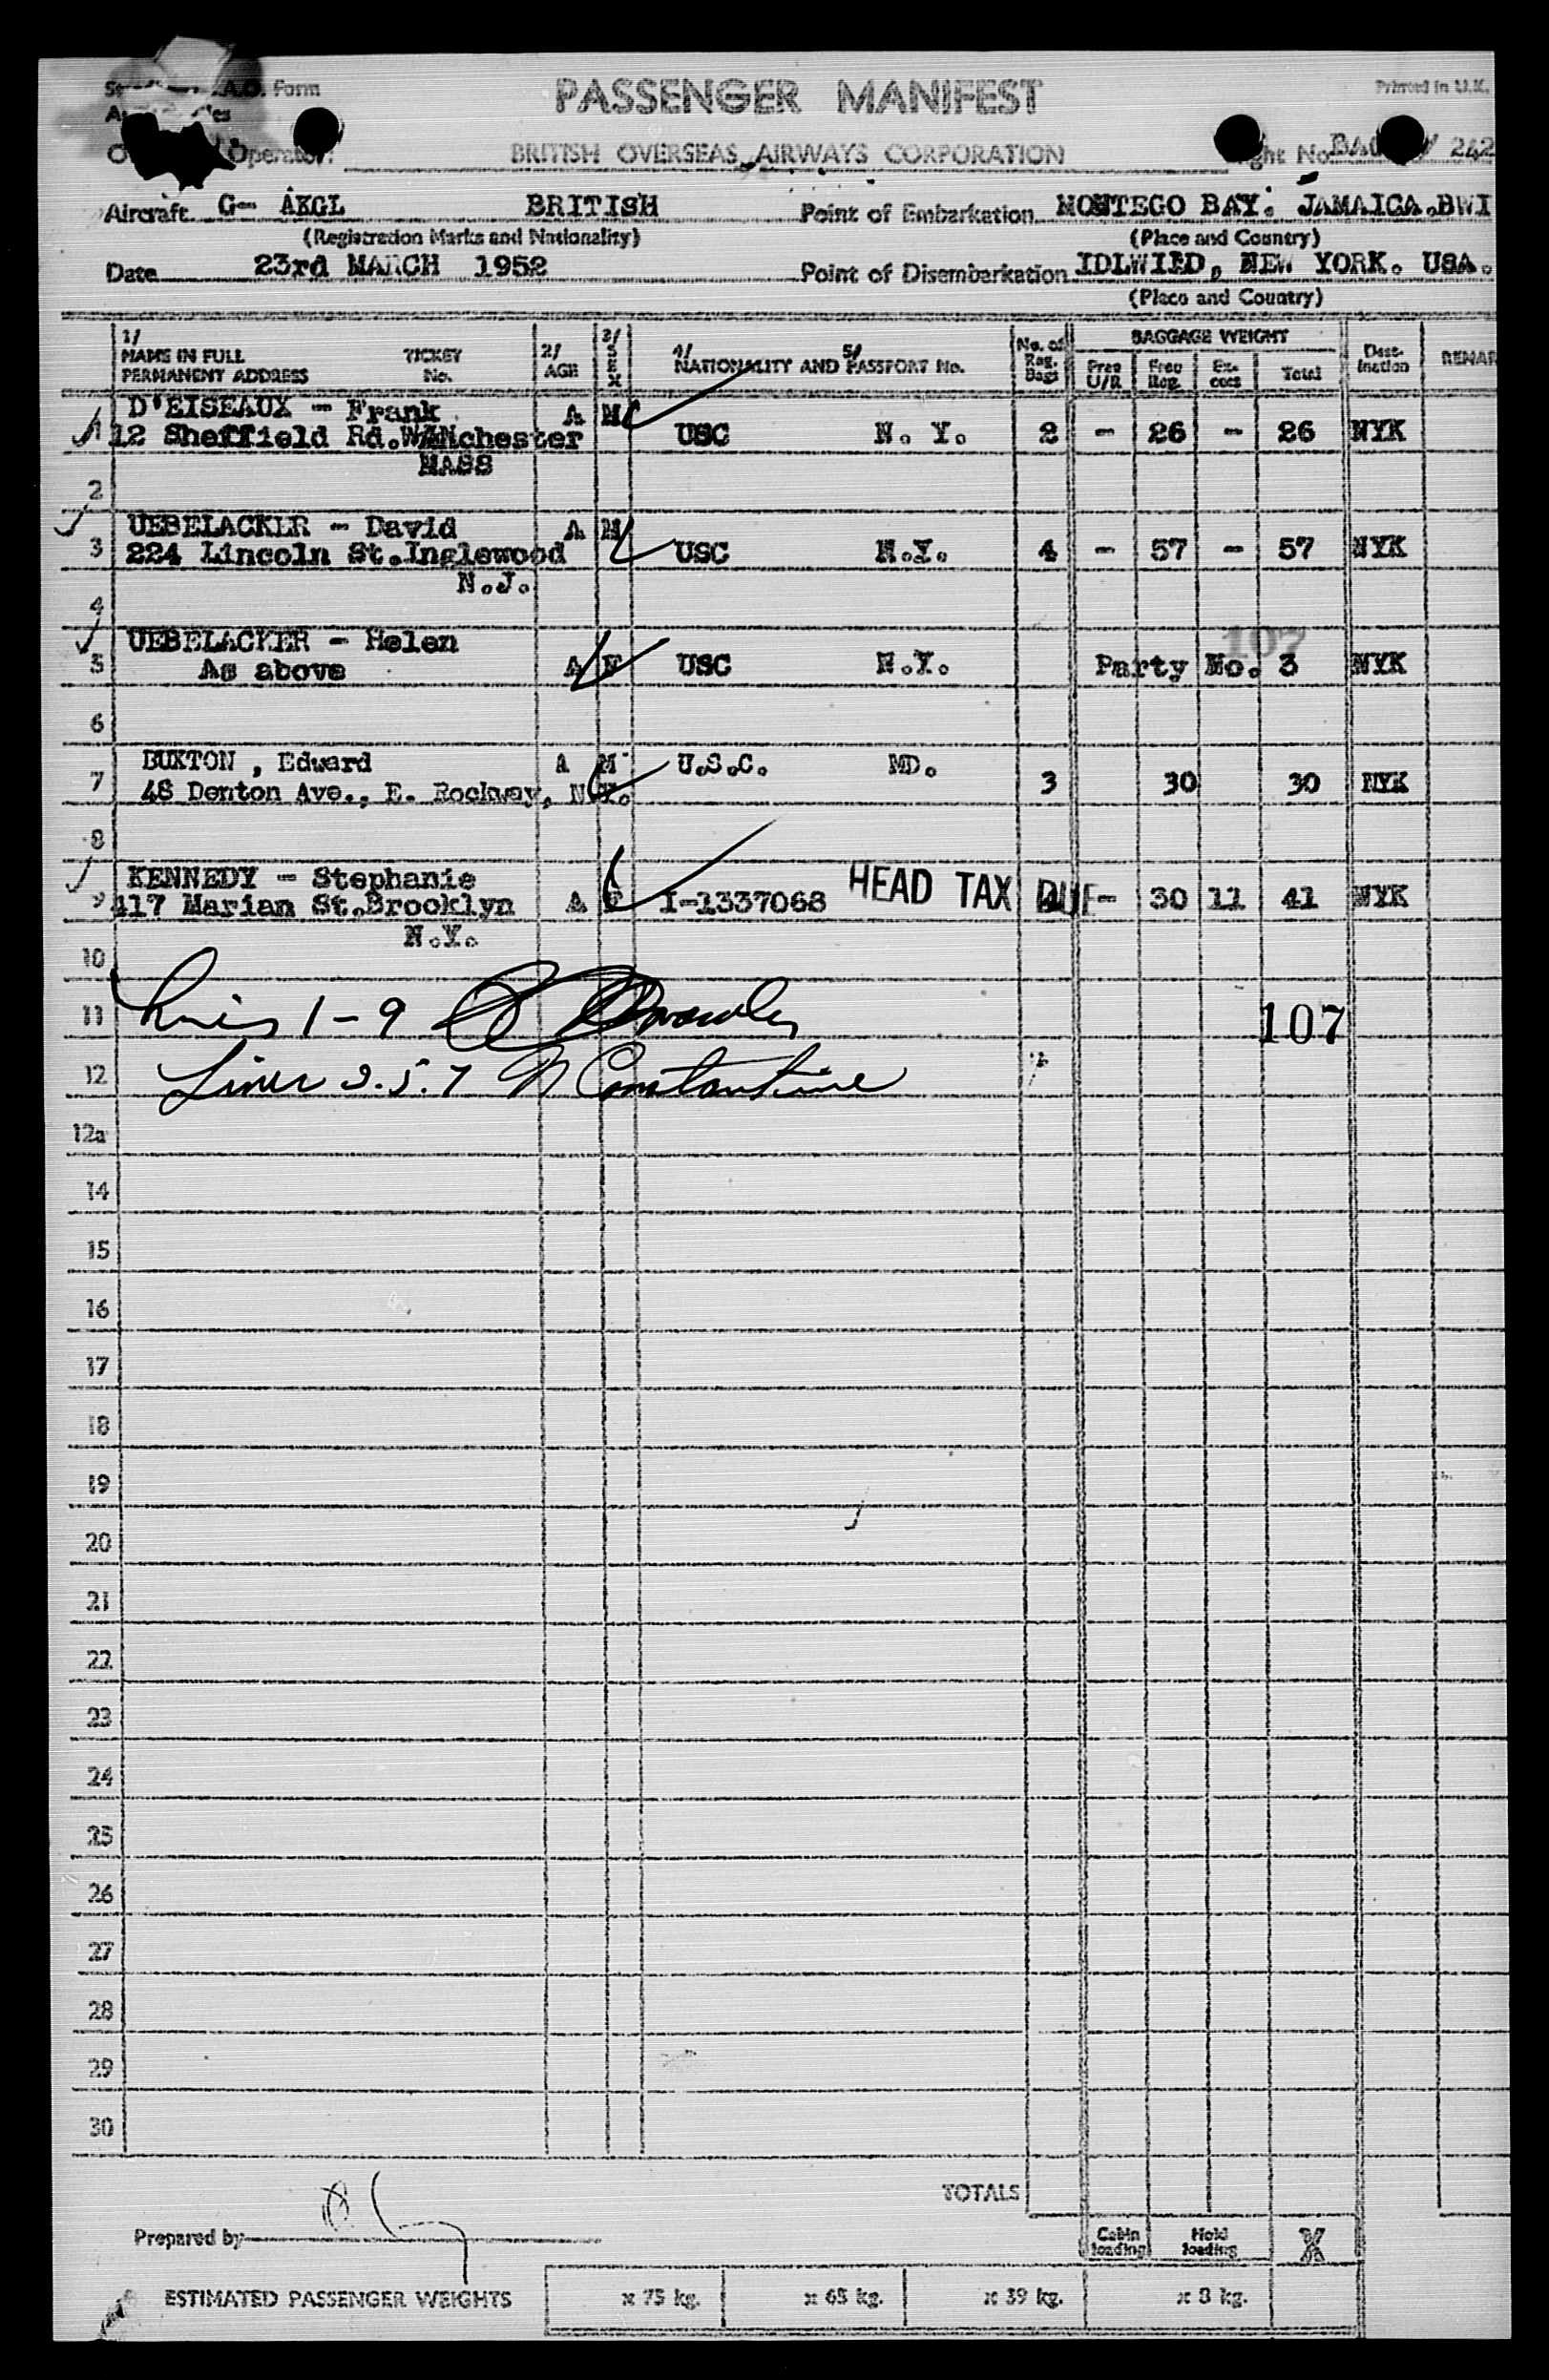 Form
PASSENGER MANIFEST
Printed in U.K.
Operator
BRITISH OVERSEAS AIRWAYS CORPORATION
242
Aircraft G- AKGL BRITISH Point of Embarkation MONTEGO BAY. JAMAICA.BWI
(Registration Marks and Nationality) (Place and Country)
Date 23rd MARCH 1952 Point of Disembarkation IDLWILD, NEW YORK. USA.
(Place and Country)
1/ 2/ 3/ 4/ 5/ No. of BAGGAGE WEIGHT
NAME IN FULL TICKET AGE SEX NATIONALITY AND PASSPORT No. Reg. Bags Free U/R Free Reg. Ex-cess Total Dest-ination REMAR
PERMANENT ADDRESS No.
D'EISEAUX - Frank A M
1 12 Sheffield Rd. Manchester USC N. Y. 2 - 26 - 26 NYK
MASS
2
UEBELACKER - David A M
3 224 Lincoln St.Inglewood USC N.Y. 4 - 57 - 57 NYK
N.J.
4
UEBELACKER - Helen 107
5 As above A F USC N.Y. Party No. 3 NYK
6
BUXTON , Edward A M U.S.C. MD.
7 48 Denton Ave., E. Rockway, N.Y. 3 30 30 NYK
8
KENNEDY - Stephanie
9 417 Marian St.Brooklyn A F I-1337068 HEAD TAX DUE - 30 11 41 NYK
N.Y.
10
11 Lines 1-9 107
12 Lines 3.5.7 N Constantine
12a
14
15
16
17
18
19
20
21
22
23
24
25
26
27
28
29
30
TOTALS
Prepared by
Cabin loading Hold loading X
ESTIMATED PASSENGER WEIGHTS x 75 kg. x 65 kg. x 39 kg. x 8 kg.